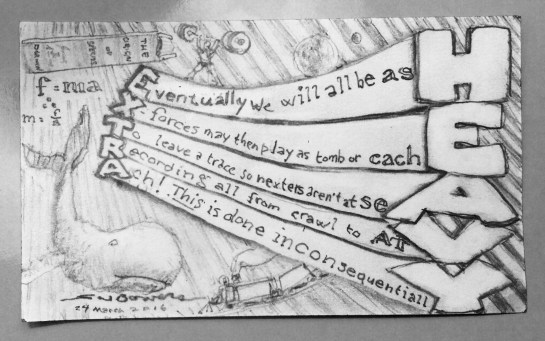 THE
ORIGIN
OF
SPECIES
DARWIN
f=ma
m=
EXTRA
HEAVY
Eventually we will all be as H
X-forces may then play as tomb or cachE
To leave a trace so nexters aren't at seA
Recording all from crawl to ATV
Ach! This is done inconsequentiallY
24 March 2016